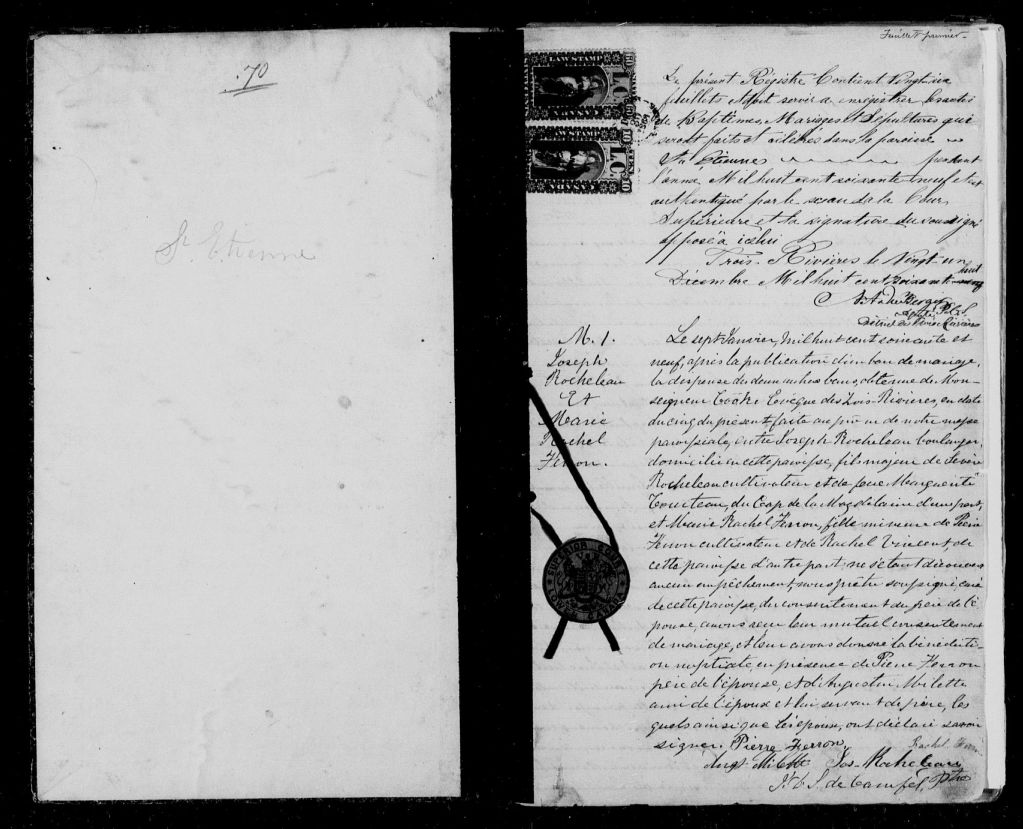 .70
St Etienne
Feuillet premier.
LAW STAMP
L.C.
LAW STAMP
L.C.
Le présent Régistre Contient Vingt un
feuillets et doit servir a enrégistrer les actes
de Baptêmes, Mariages et Sépultures qui
seront faits et célébrés dans la paroisse
St Etienne pendant
l'année Mil huit cent soixante neuf et est
authentiqué par le sceau de la Cour
Supérieure et la signature du soussigné
apposé à icelui
Trois-Rivières le Vingt-un
Décembre Mil huit cent soixante huit
M. 1.
Joseph
Rocheleau
Et
Marie
Rachel
Ferron.
Le sept Janvier, mil huit cent soixante et
neuf, après la publication d'un ban de mariage,
la dispense des deux autres bans obtenue de Mon-
seigneur Cooke Evêque des Trois-Rivières, en date
du cinq du présent, faite au prône de notre messe
paroissiale, entre Joseph Rocheleau boulanger,
domicilié en cette paroisse, fils majeur de
Rocheleau cultivateur et de feue Marguerite
du Cap de la Magdelaine d'une part,
et Marie Rachel Ferron, fille mineure de Pierre
Ferron cultivateur et de Rachel Vincent, de
cette paroisse d'autre part; ne s'étant découvert
aucun empêchement, nous prêtre soussigné, curé
de cette paroisse, du consentement du père de l'é-
pouse, avons reçu leur mutuel consentement
de mariage, et leur avons donné la bénédicti-
on nuptiale, en présence de Pierre Ferron
père de l'épouse, et d'Augustin Milette
ami de l'époux et lui servant de père, les
quels ainsi que les époux, ont déclaré savoir
signer. Pierre Ferron, Rachel Ferron
Augt Milette Jos. Rocheleau
Ptre
SUPERIOR COURT
LOWER CANADA